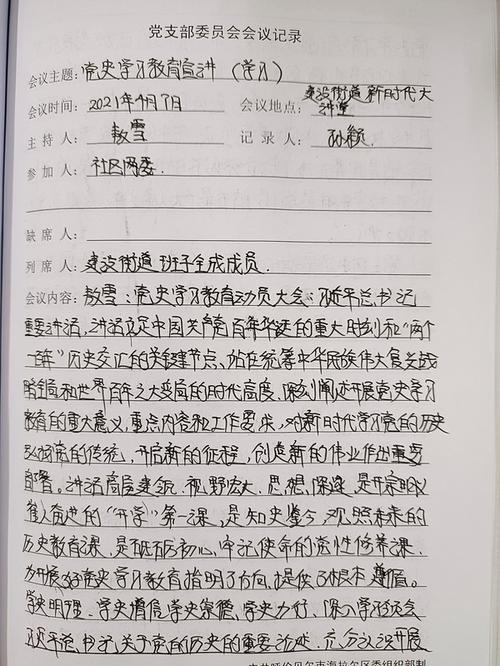 党支部委员会会议记录
会议主题：党史学习教育宣讲（学习）
会议时间：2021年4月7日 会议地点：建设街道新时代大讲堂
主持人：敖雪 记录人：孙颖
参加人：社区两委.
缺席人：
列席人：建设街道班子全成成员.
会议内容：敖雪：党史学习教育动员大会：习近平总书记
重要讲话，讲话立足中国共产党百年华诞的重大时刻和"两个
一百年"历史交汇的关键节点、站在统筹中华民族伟大复兴战
略全局和世界百年之大变局的时代高度，深刻阐述开展党史学习
教育的重大意义，重点内容和工作要求，对新时代学习党的历史
弘扬党的传统，开启新的征程，创造新的伟业作出重要
部署。讲话高屋建瓴.视野宏大.思想.深邃.是开宗明义
催人奋进的"开学"第一课，是知史鉴今，观照未来的
历史教育课.是砥砺初心，牢记使命的党性修养课.
为开展好党史学习教育指明了方向，提供了根本遵循。
学史明理.学史增信学史崇德、学史力行，深入学习领会
习近平总书记关于党的历史的重要论述.充分认识开展
中共呼伦贝尔市海拉尔区委组织部制